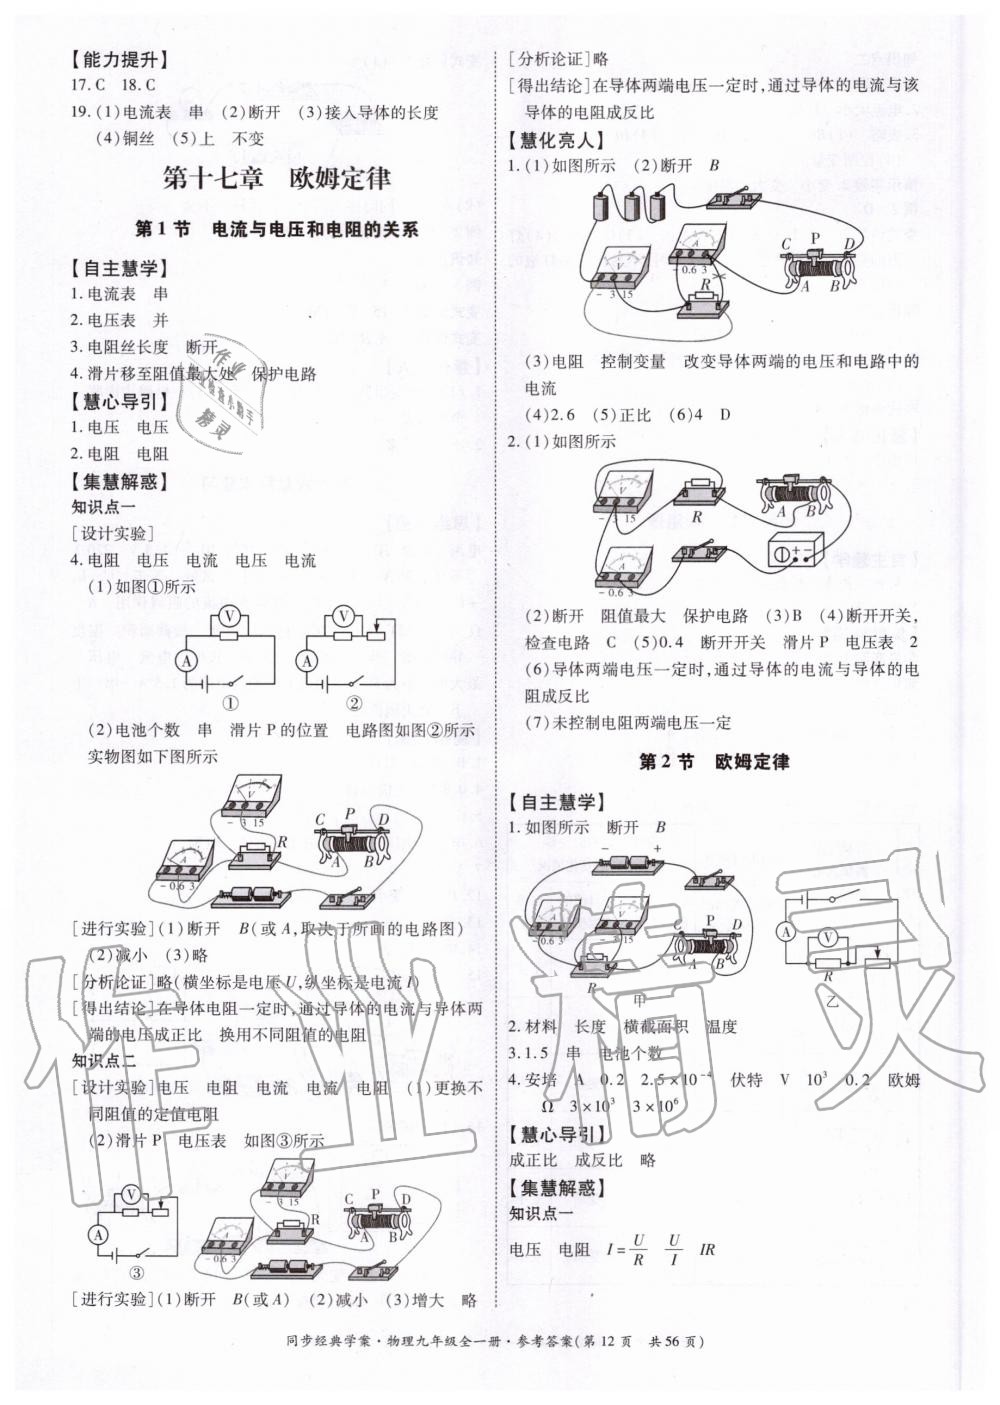 【能力提升】
17.C 18.C
19.(1)电流表 串 (2)断开 (3)接入导体的长度
(4)铜丝 (5)上 不变
第十七章 欧姆定律
第1节 电流与电压和电阻的关系
【自主慧学】
1.电流表 串
2.电压表 并
3.电阻丝长度 断开
4.滑片移至阻值最大处 保护电路
【慧心导引】
1.电压 电压
2.电阻 电阻
【集慧解惑】
知识点一
[设计实验]
4.电阻 电压 电流 电压 电流
(1)如图①所示
V V
A A
① ②
(2)电池个数 串 滑片P的位置 电路图如图②所示
实物图如下图所示
V
- 3 15
A
- 0.6 3
R
C P D
A B
[进行实验](1)断开 B(或A,取决于所画的电路图)
(2)减小 (3)略
[分析论证]略(横坐标是电压U,纵坐标是电流I)
[得出结论]在导体电阻一定时,通过导体的电流与导体两
端的电压成正比 换用不同阻值的电阻
知识点二
[设计实验]电压 电阻 电流 电流 电阻 (1)更换不
同阻值的定值电阻
(2)滑片P 电压表 如图③所示
V
A
③
V
- 3 15
A
- 0.6 3
R
C P D
A B
[进行实验](1)断开 B(或A) (2)减小 (3)增大 略
[分析论证]略
[得出结论]在导体两端电压一定时,通过导体的电流与该
导体的电阻成反比
【慧化亮人】
1.(1)如图所示 (2)断开 B
A
- 0.6 3
V
- 3 15
R
C P D
A B
(3)电阻 控制变量 改变导体两端的电压和电路中的
电流
(4)2.6 (5)正比 (6)4 D
2.(1)如图所示
V
- 3 15
R
P
A B
A
- 0.6 3
+ -
(2)断开 阻值最大 保护电路 (3)B (4)断开开关,
检查电路 C (5)0.4 断开开关 滑片P 电压表 2
(6)导体两端电压一定时,通过导体的电流与导体的电
阻成反比
(7)未控制电阻两端电压一定
第2节 欧姆定律
【自主慧学】
1.如图所示 断开 B
- +
A
- 0.6 3
V
- 3 15
R
C P D
A B
甲
A
V
R
乙
2.材料 长度 横截面积 温度
3.1.5 串 电池个数
4.安培 A 0.2 2.5×10⁻⁴ 伏特 V 10³ 0.2 欧姆
Ω 3×10³ 3×10⁶
【慧心导引】
成正比 成反比 略
【集慧解惑】
知识点一
电压 电阻 I=U/R U/I IR
同步经典学案·物理九年级全一册·参考答案(第12页 共56页)
作业精灵